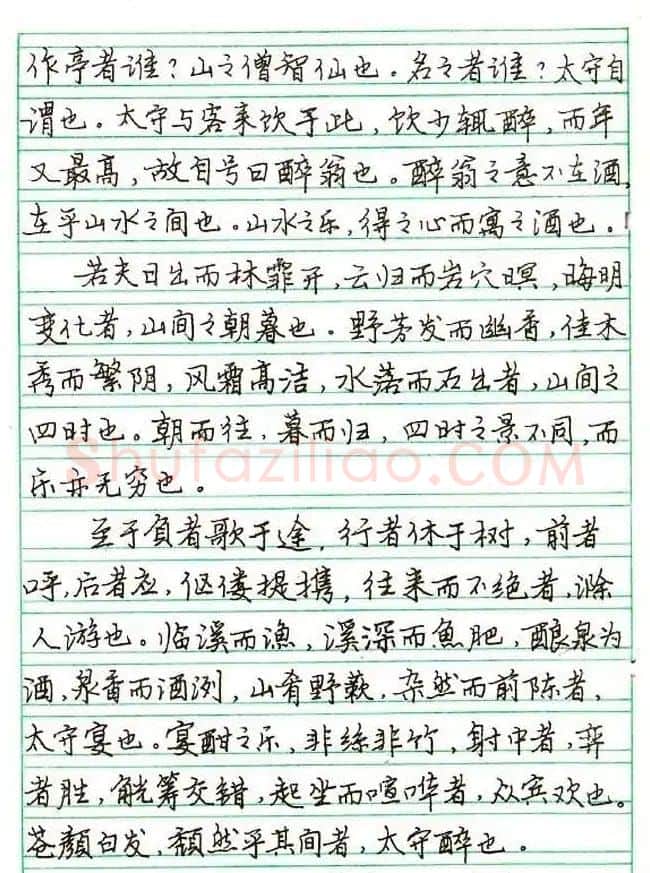 作亭者谁？山之僧智仙也。名之者谁？太守自
谓也。太守与客来饮于此，饮少辄醉，而年
又最高，故自号曰醉翁也。醉翁之意不在酒，
在乎山水之间也。山水之乐，得之心而寓之酒也。
若夫日出而林霏开，云归而岩穴暝，晦明
变化者，山间之朝暮也。野芳发而幽香，佳木
秀而繁阴，风霜高洁，水落而石出者，山间之
四时也。朝而往，暮而归，四时之景不同，而
乐亦无穷也。
shufaziliao.COM
至于負者歌于途，行者休于树，前者
呼，后者应，伛偻提携，往来而不绝者，滁
人游也。临溪而渔，溪深而魚肥，酿泉为
酒，泉香而酒洌，山肴野蔌，杂然而前陈者，
太守宴也。宴酣之乐，非丝非竹，射中者，弈
者胜，觥筹交错，起坐而喧哗者，众宾欢也。
苍颜白发，颓然乎其间者，太守醉也。